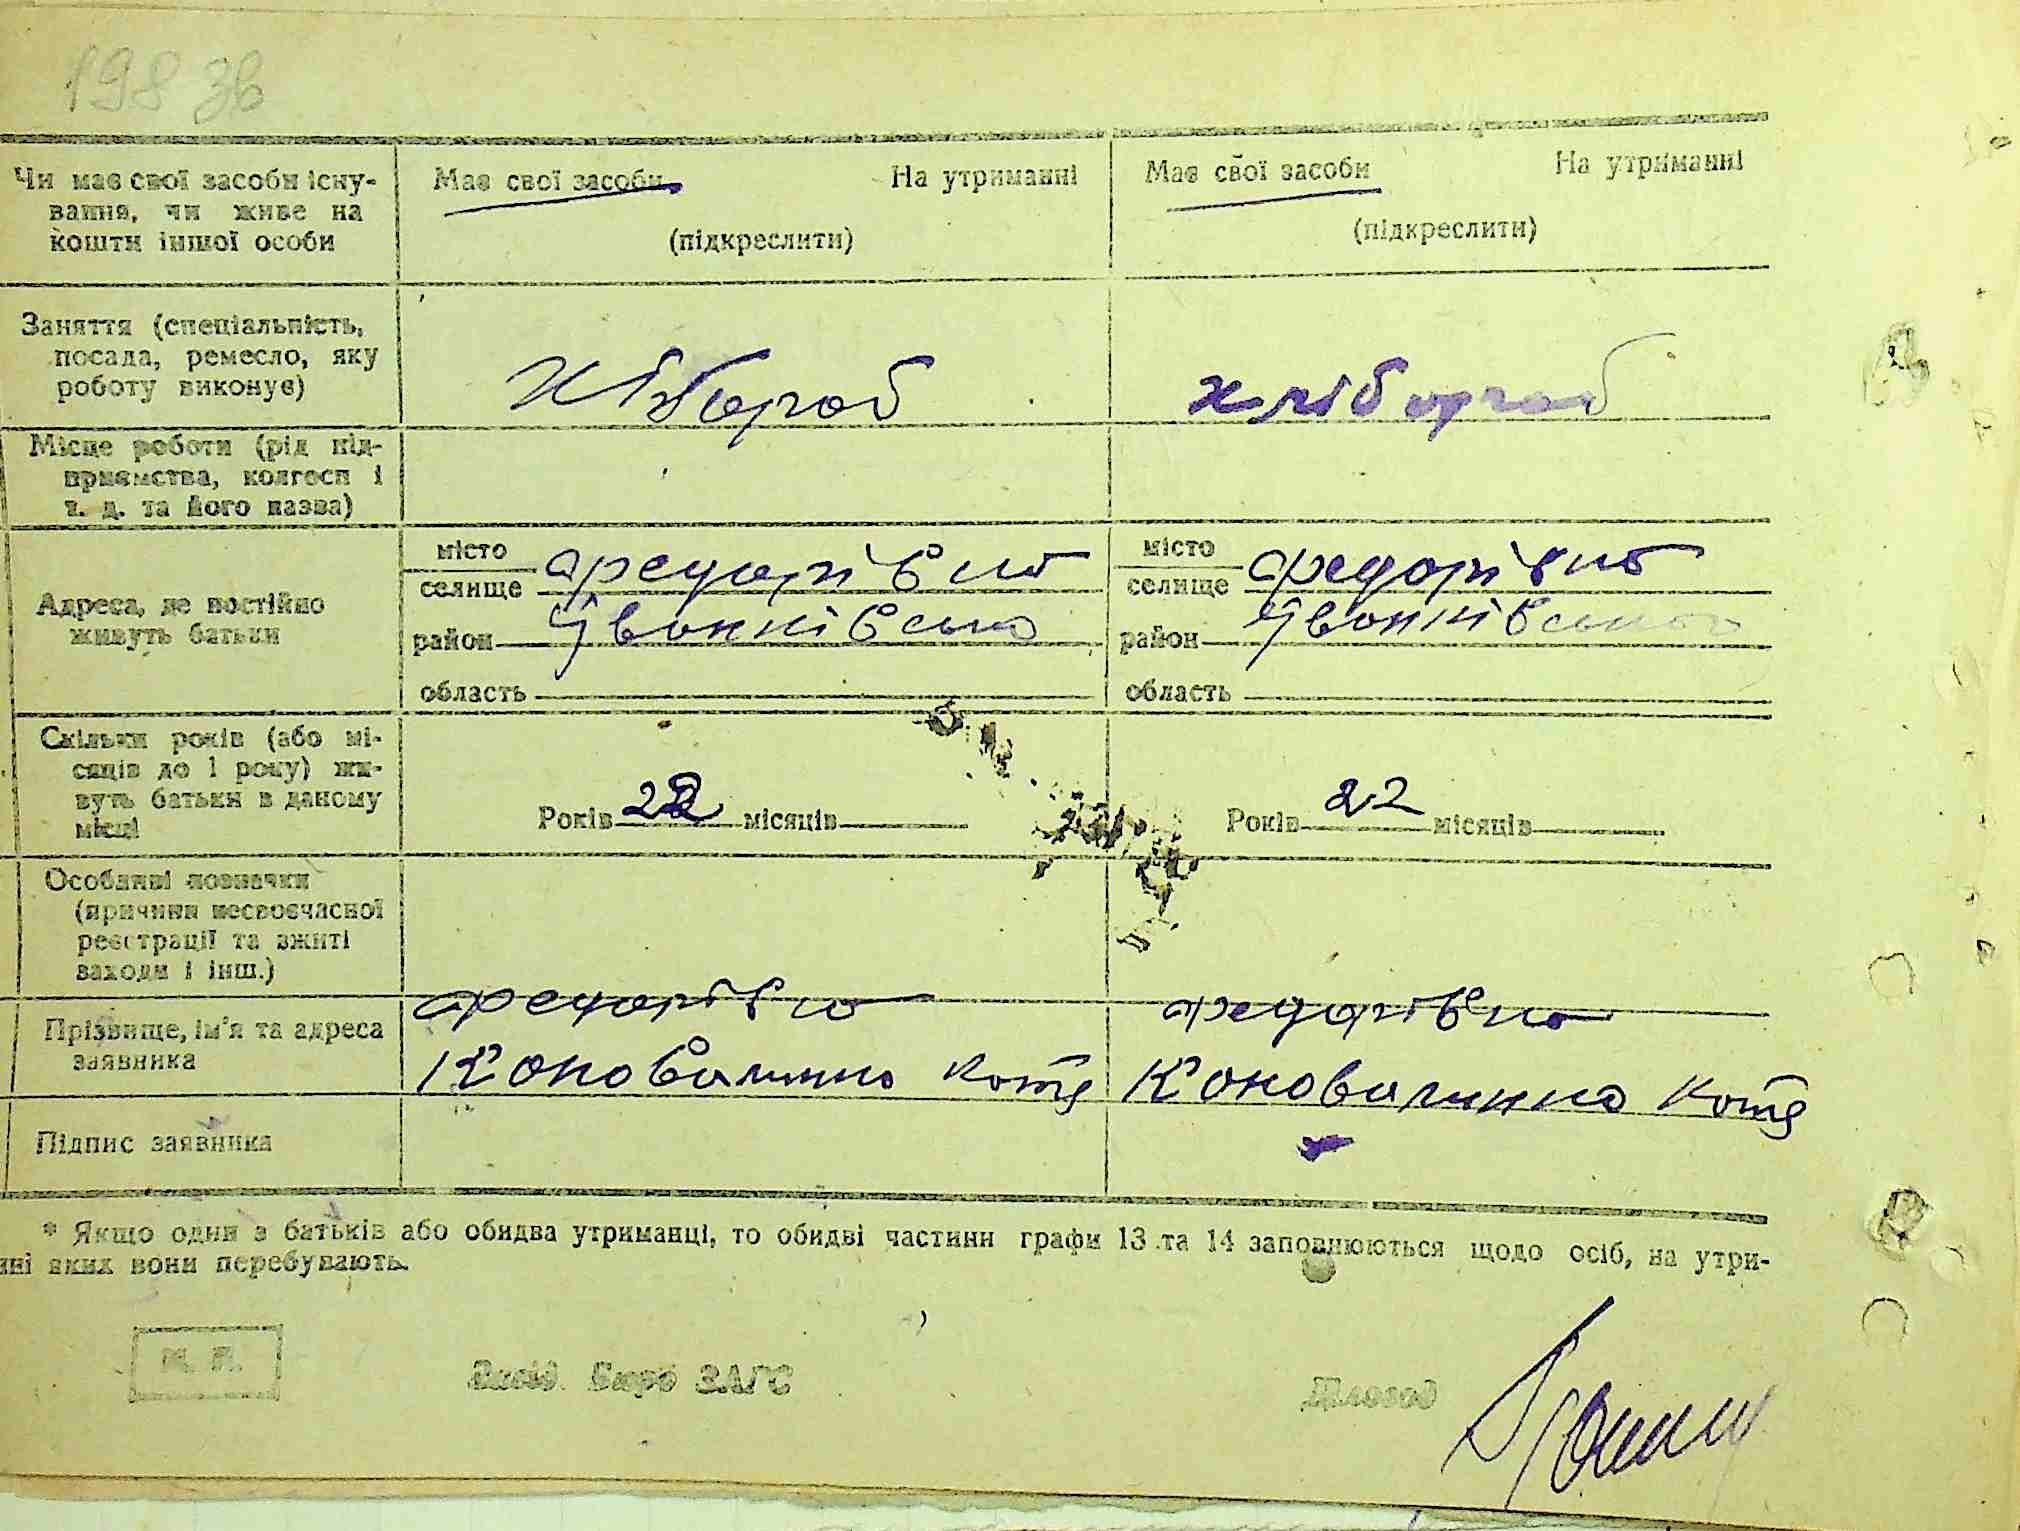 198 зв
Чи має свої засоби існу-
вання, чи живе на
кошти іншої особи
Має свої засоби На утриманні
(підкреслити)
Має свої засоби На утриманні
(підкреслити)
Заняття (спеціальність,
посада, ремесло, яку
роботу виконує)
хлібороб
хлібороб
Місце роботи (рід під-
приємства, колгосп і
т. д. та його назва)
Адреса, де постійно
живуть батьки
місто
селище Федорівка
район
область
місто
селище Федорівка
район
область
Скільки років (або мі-
сяців до 1 року) жи-
вуть батьки в даному
місці
Років 22 місяців
Років 22 місяців
Особливі позначки
(причини несвоєчасної
реєстрації та вжиті
заходи і інш.)
Прізвище, ім'я та адреса
заявника
Федорівка
Коновалинко Котя
Федорівка
Коновалинко Котя
Підпис заявника
* Якщо один з батьків або обидва утриманці, то обидві частини графи 13 та 14 заповнюються щодо осіб, на утри-
нні яких вони перебувають.
М. П.
Бюро ЗАГС